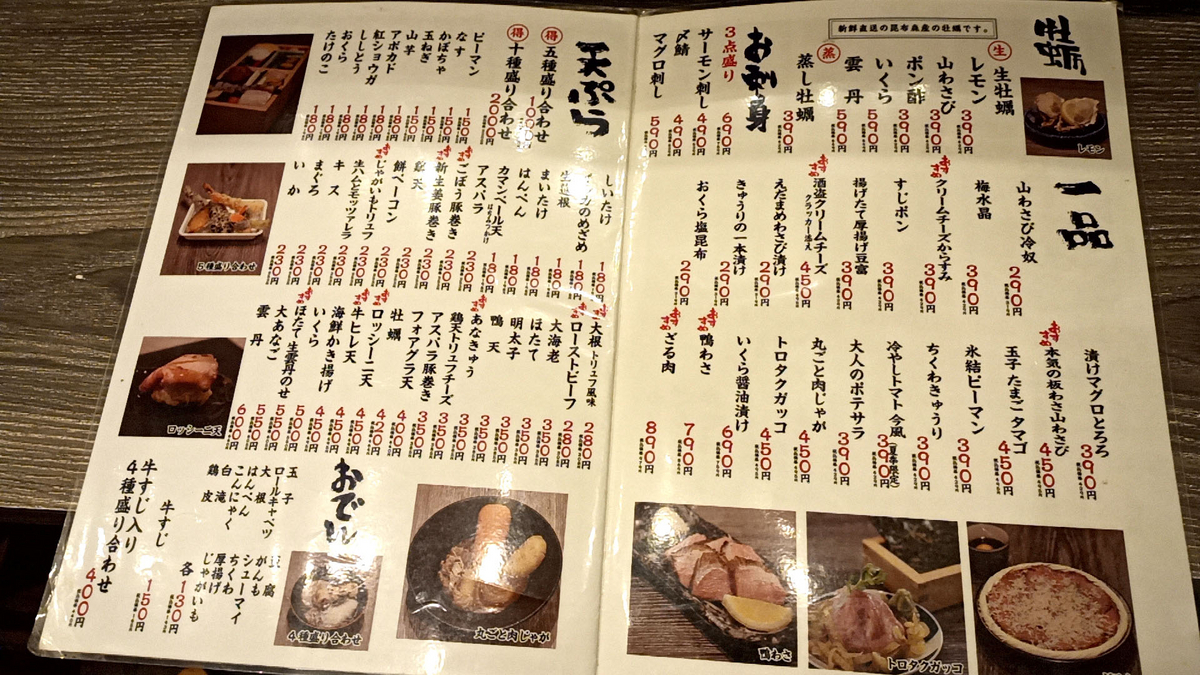 牡蠣
新鮮直送の昆布森産の牡蠣です。
生 生牡蠣
レモン 390円
山わさび 390円
ポン酢 390円
いくら 590円
雲丹 590円
蒸 蒸し牡蠣 390円
レモン
お刺身
3点盛り 690円
サーモン刺し 490円
〆鯖 490円
マグロ刺し 590円
一品
山わさび冷奴 290円
梅水晶 390円
おすすめ クリームチーズからすみ 390円
すじポン 390円
揚げたて厚揚げ豆富 390円
おすすめ 酒盗クリームチーズ クラッカー添え 450円
えだまめわさび漬け 290円
きゅうりの一本漬け 290円
おくら塩昆布 290円
漬けマグロとろろ 390円
おすすめ 本気の板わさ山わさび 450円
玉子 たまご タマゴ 450円
氷結ピーマン 390円
ちくわきゅうり 390円
冷やしトマト 今風 (夏季限定) 390円
大人のポテサラ 390円
丸ごと肉じゃが 450円
トロタクガッコ 450円
いくら醤油漬け 690円
おすすめ 鴨わさ 790円
おすすめ ざる肉 890円
鴨わさ
トロタクガッコ
天ぷら
得 五種盛り合わせ
得 十種盛り合わせ 2000円
ピーマン 150円
なす 150円
かぼちゃ 150円
玉ねぎ 150円
山芋 180円
アボカド 180円
紅ショウガ 180円
ししとう 180円
おくら 180円
たけのこ 180円
しいたけ 180円
まいたけ 180円
はんぺん 180円
カマンベール天 はちみつがけ 180円
アスパラ 230円
おすすめ ごぼう豚巻き 230円
おすすめ 新生姜豚巻き 230円
餅ベーコン 230円
おすすめ じゃがいもトリュフ 230円
生ハムとモッツァレラ 230円
キス 230円
まぐろ 230円
いか 230円
おすすめ 大根 トリュフ風味 280円
おすすめ ローストビーフ 280円
大海老 350円
ほたて 350円
明太子 350円
鴨天 350円
おすすめ あなきゅう 350円
鶏天トリュフチーズ 350円
アスパラ豚巻き 350円
フォアグラ天 350円
牡蠣 400円
おすすめ ロッシーニ天 420円
牛ヒレ天 450円
海鮮かき揚げ 450円
いくら 450円
おすすめ ほたて生雲丹のせ 500円
大あなご 550円
雲丹 600円
5種盛り合わせ
ロッシーニ天
おでん
玉子
ロールキャベツ
大根
はんぺん
こんにゃく
白滝
鶏皮
豆腐
がんも
シューマイ
ちくわ
厚揚げ
じゃがいも
各130円
牛すじ 150円
牛すじ入り
4種盛り合わせ 400円
4種盛り合わせ
丸ごと肉じゃが